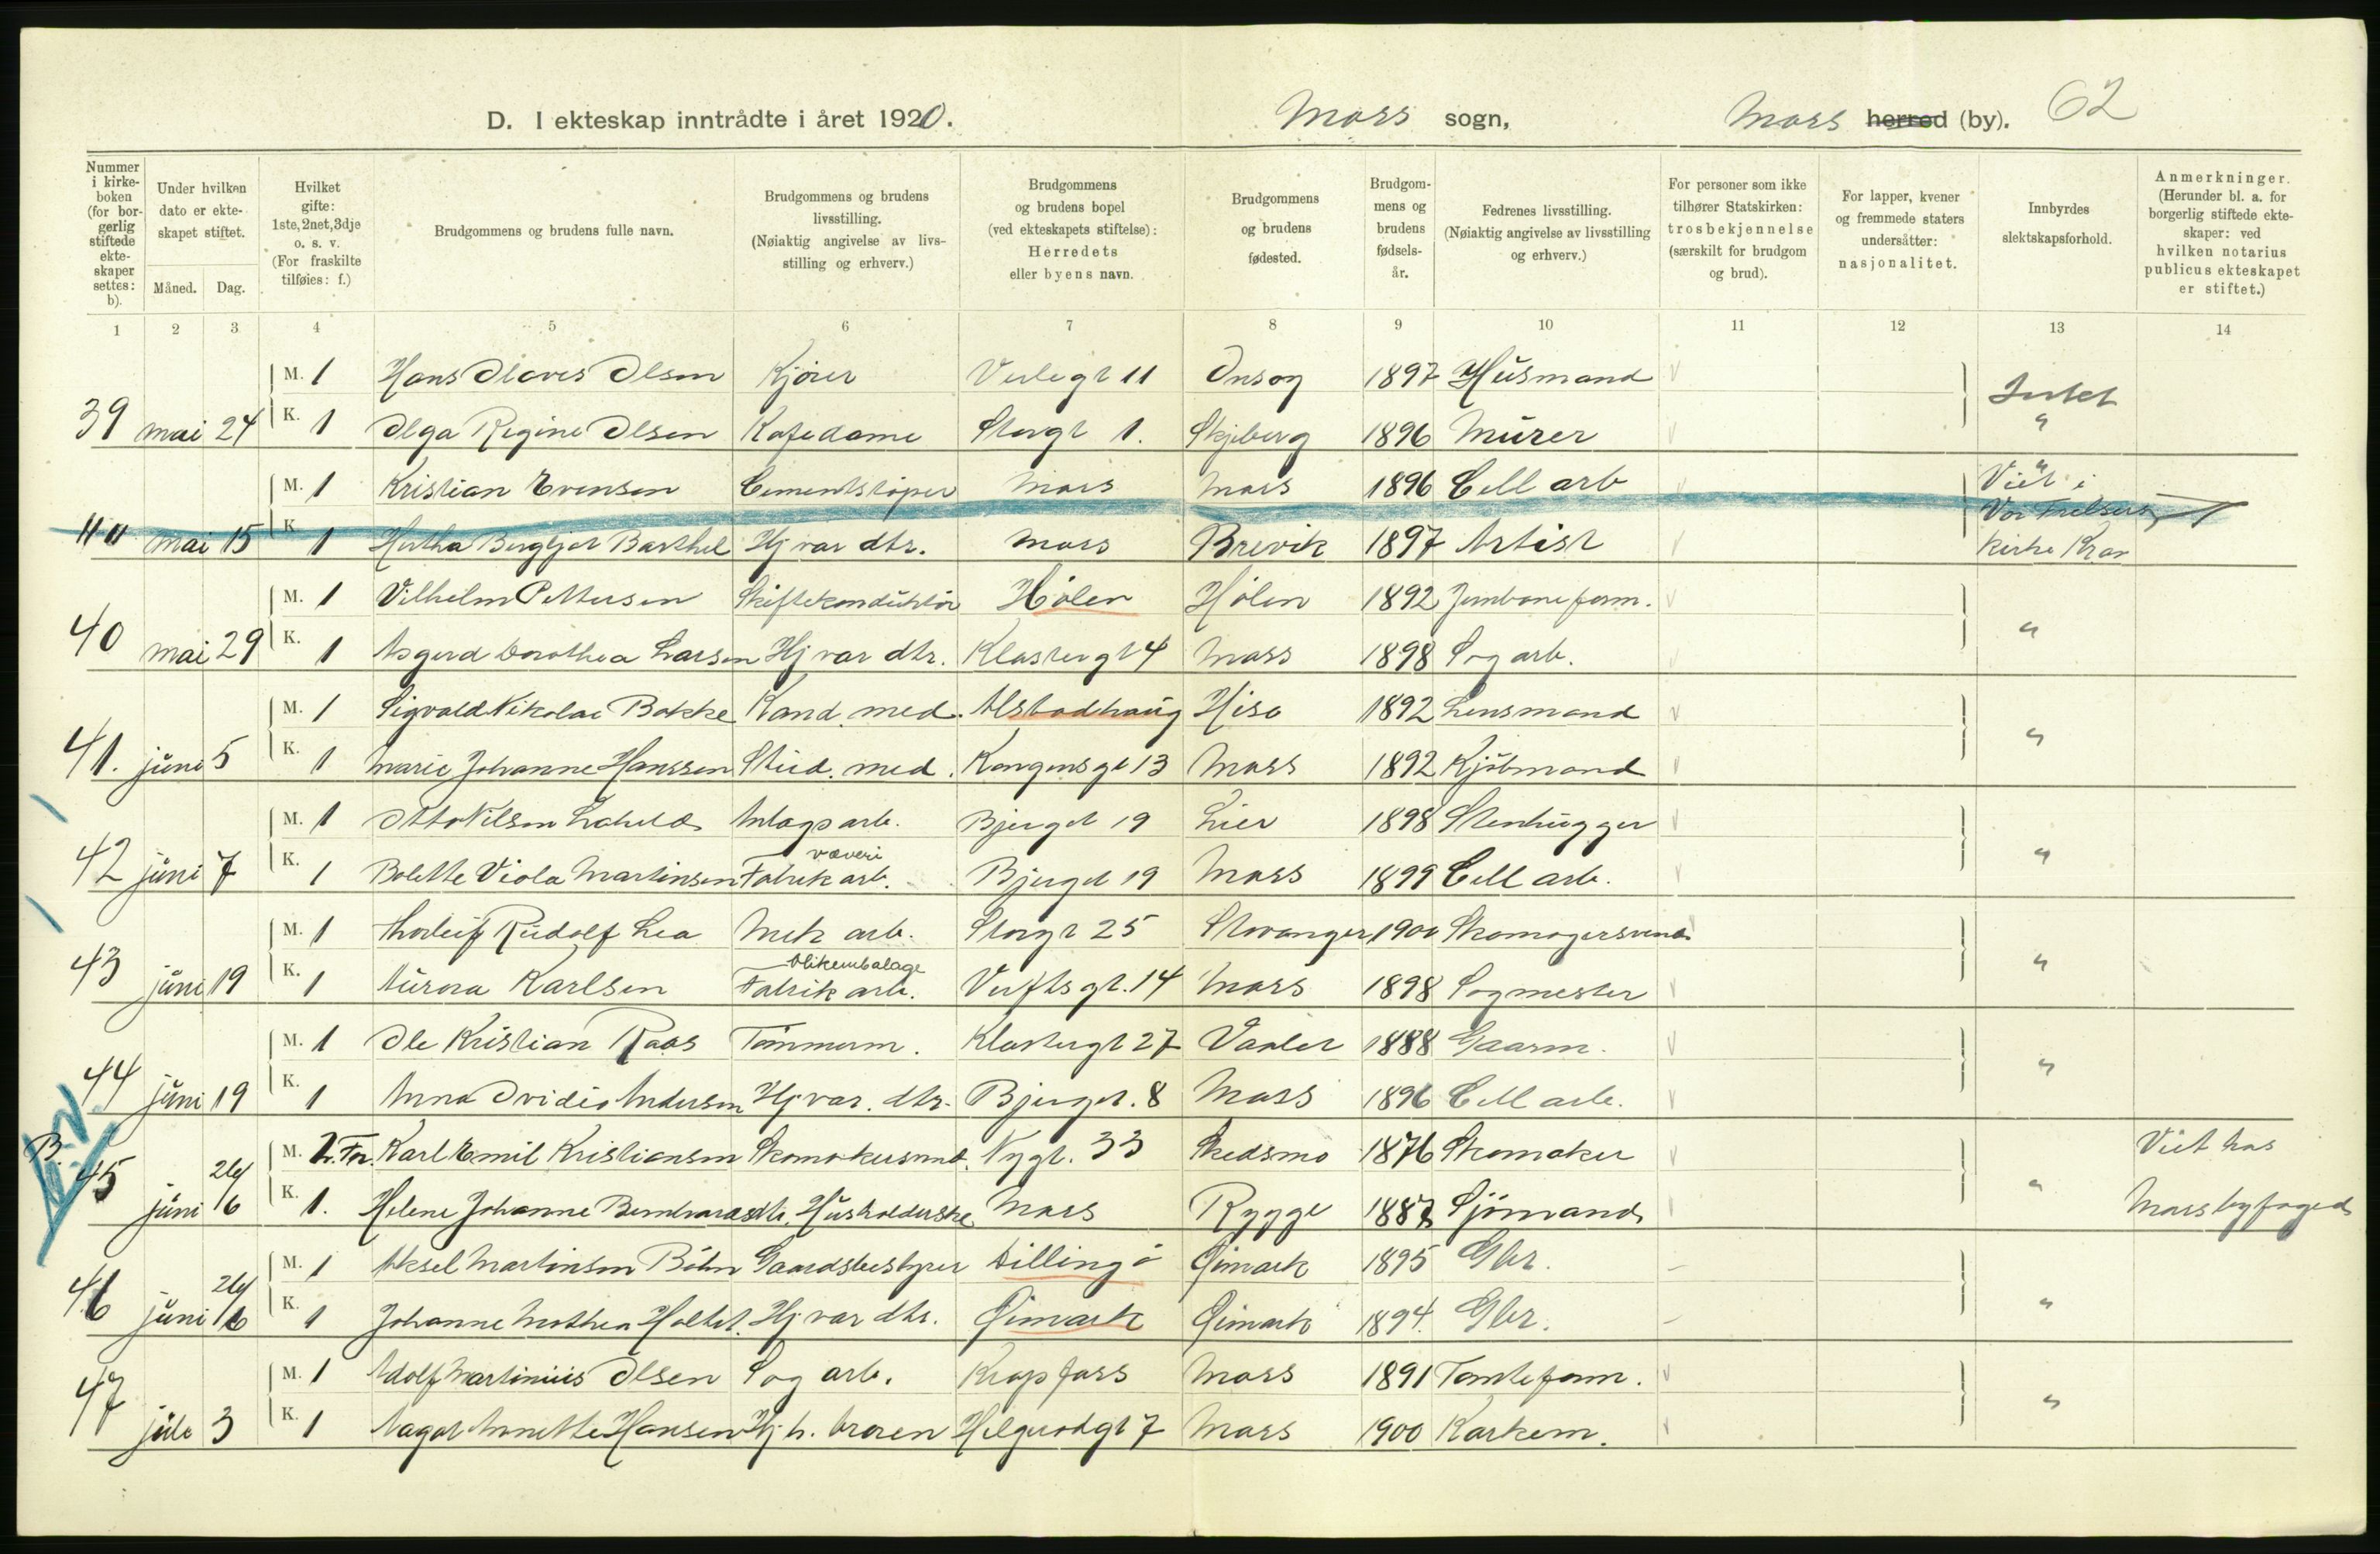 D. I ekteskap inntrådte i året 1920. Moss sogn, Moss herred (by). 62
Nummer i kirkeboken (for borgerlig stiftede ekteskaper settes: b).
Under hvilken dato er ekteskapet stiftet.
Måned. Dag.
Hvilket gifte: 1ste, 2net, 3dje o. s. v. (For fraskilte tilføies: f.)
Brudgommens og brudens fulle navn.
Brudgommens og brudens livsstilling. (Nøiaktig angivelse av livsstilling og erhverv.)
Brudgommens og brudens bopel (ved ekteskapets stiftelse): Herredets eller byens navn.
Brudgommens og brudens fødested.
Brudgommens og brudens fødselsår.
Fedrenes livsstilling. (Nøiaktig angivelse av livsstilling og erhverv.)
For personer som ikke tilhører Statskirken: trosbekjennelse (særskilt for brudgom og brud).
For lapper, kvener og fremmede staters undersåtter: nasjonalitet.
Innbyrdes slektskapsforhold.
Anmerkninger. (Herunder bl. a. for borgerlig stiftede ekteskaper: ved hvilken notarius publicus ekteskapet er stiftet.)
1 2 3 4 5 6 7 8 9 10 11 12 13 14
M. 1 Hans Olaves Olsen Kjører Verlegt 11 Onsøy 1897 Husmand Intet
39 mai 24 K. 1 Olga Regine Olsen Kafedame Storgt 1. Skjeberg 1896 Murer "
M. 1 Kristian Evensen Cementstøper Moss Moss 1896 Cell arb " Viet i
" " mai 15 K 1 Hertha Bergljot Barthel Hj var dtr. Moss Brevik 1897 Artist Vor Frelsers kirke Kra
M. 1 Vilhelm Pettersen Skiftekonduktør Hølen Hølen 1892 Jernbaneform.
40 mai 29 K. 1 Asgerd Dorothea Larsen Hj var dtr. Klostergt 4 Moss 1898 Sagarb. "
M. 1 Sigvald Nikolai Bakke Kand. med. Alstadhaug Hisø 1892 Lensmand
41. juni 5 K. 1 Marie Johanne Hanssen Stud. med. Kongensgt 13 Moss 1892 Kjøbmand "
M. 1 Otto Nilsen Anlagsarb. Bjerget 19 Lier 1898 Stenhugger
42 juni 7 K. 1 Bolette Viola Martinsen væveri Fabrik arb. Bjerget 19 Moss 1899 Cell arb. "
M. 1 Thorleif Rudolf Lea Mek arb. Storgt 25 Stavanger 1900 Skomagersvend
43 juni 19 K. 1 Aurora Karlsen blikembalage Fabrik arb. Verftsgt. 14 Moss 1898 Sagmester "
M. 1 Ole Kristian Raas Tømmerm. Klostergt 27 Vaaler 1888 Gaarm.
44 juni 19 K. 1 Anna Ovidia Andersen Hj var. dtr. Bjerget. 8 Moss 1896 Cell arb. "
B. M. 2. Fr. Karl Emil Kristiansen Skomakersvend. Nygt. 33 Skedsmo 1876 Skomaker Viet hos
45 juni 26/6 K. 1. Helene Johanne Bernhardsdtr. Husholderske Moss Rygge 1887 Sjømand " Moss byfoged
M. 1 Aksel Martinsen Bøhn Gaardsbestyrer Dilling ö Øimark 1895 Gbr.
46 juni 26/6 K. 1 Johanne Mathea Holtet. Hj var dtr. Øimark Øimark 1894. Gbr. "
M. 1 Adolf Martinius Olsen Sag arb. Krapfoss Moss 1891 Tomteform.
47 juli 3 K. 1 Aagot Annette Hansen Hj h. broren Helgerødgt 7 Moss 1900 Karkem. "